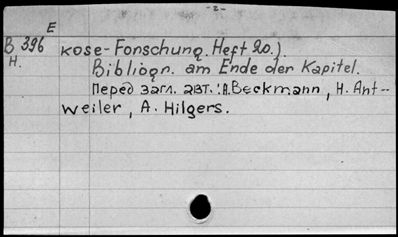 -2-
E
B 396
H.
kose-Forschung. Heft 20.).
Bibliogr. am Ende der Kapitel.
Перед загл. авт.: A. Beckmann, H. Ant-
weiler, A. Hilgers.